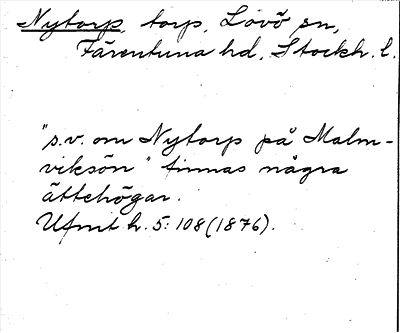 Nytorp, torp, Lovö sn,
Färentuna hd, Stockh. l.
"s.v. om Nytorp på Malm-
viksön" finnas några
ättehögar.
Ufmt h. 5: 108 (1876).